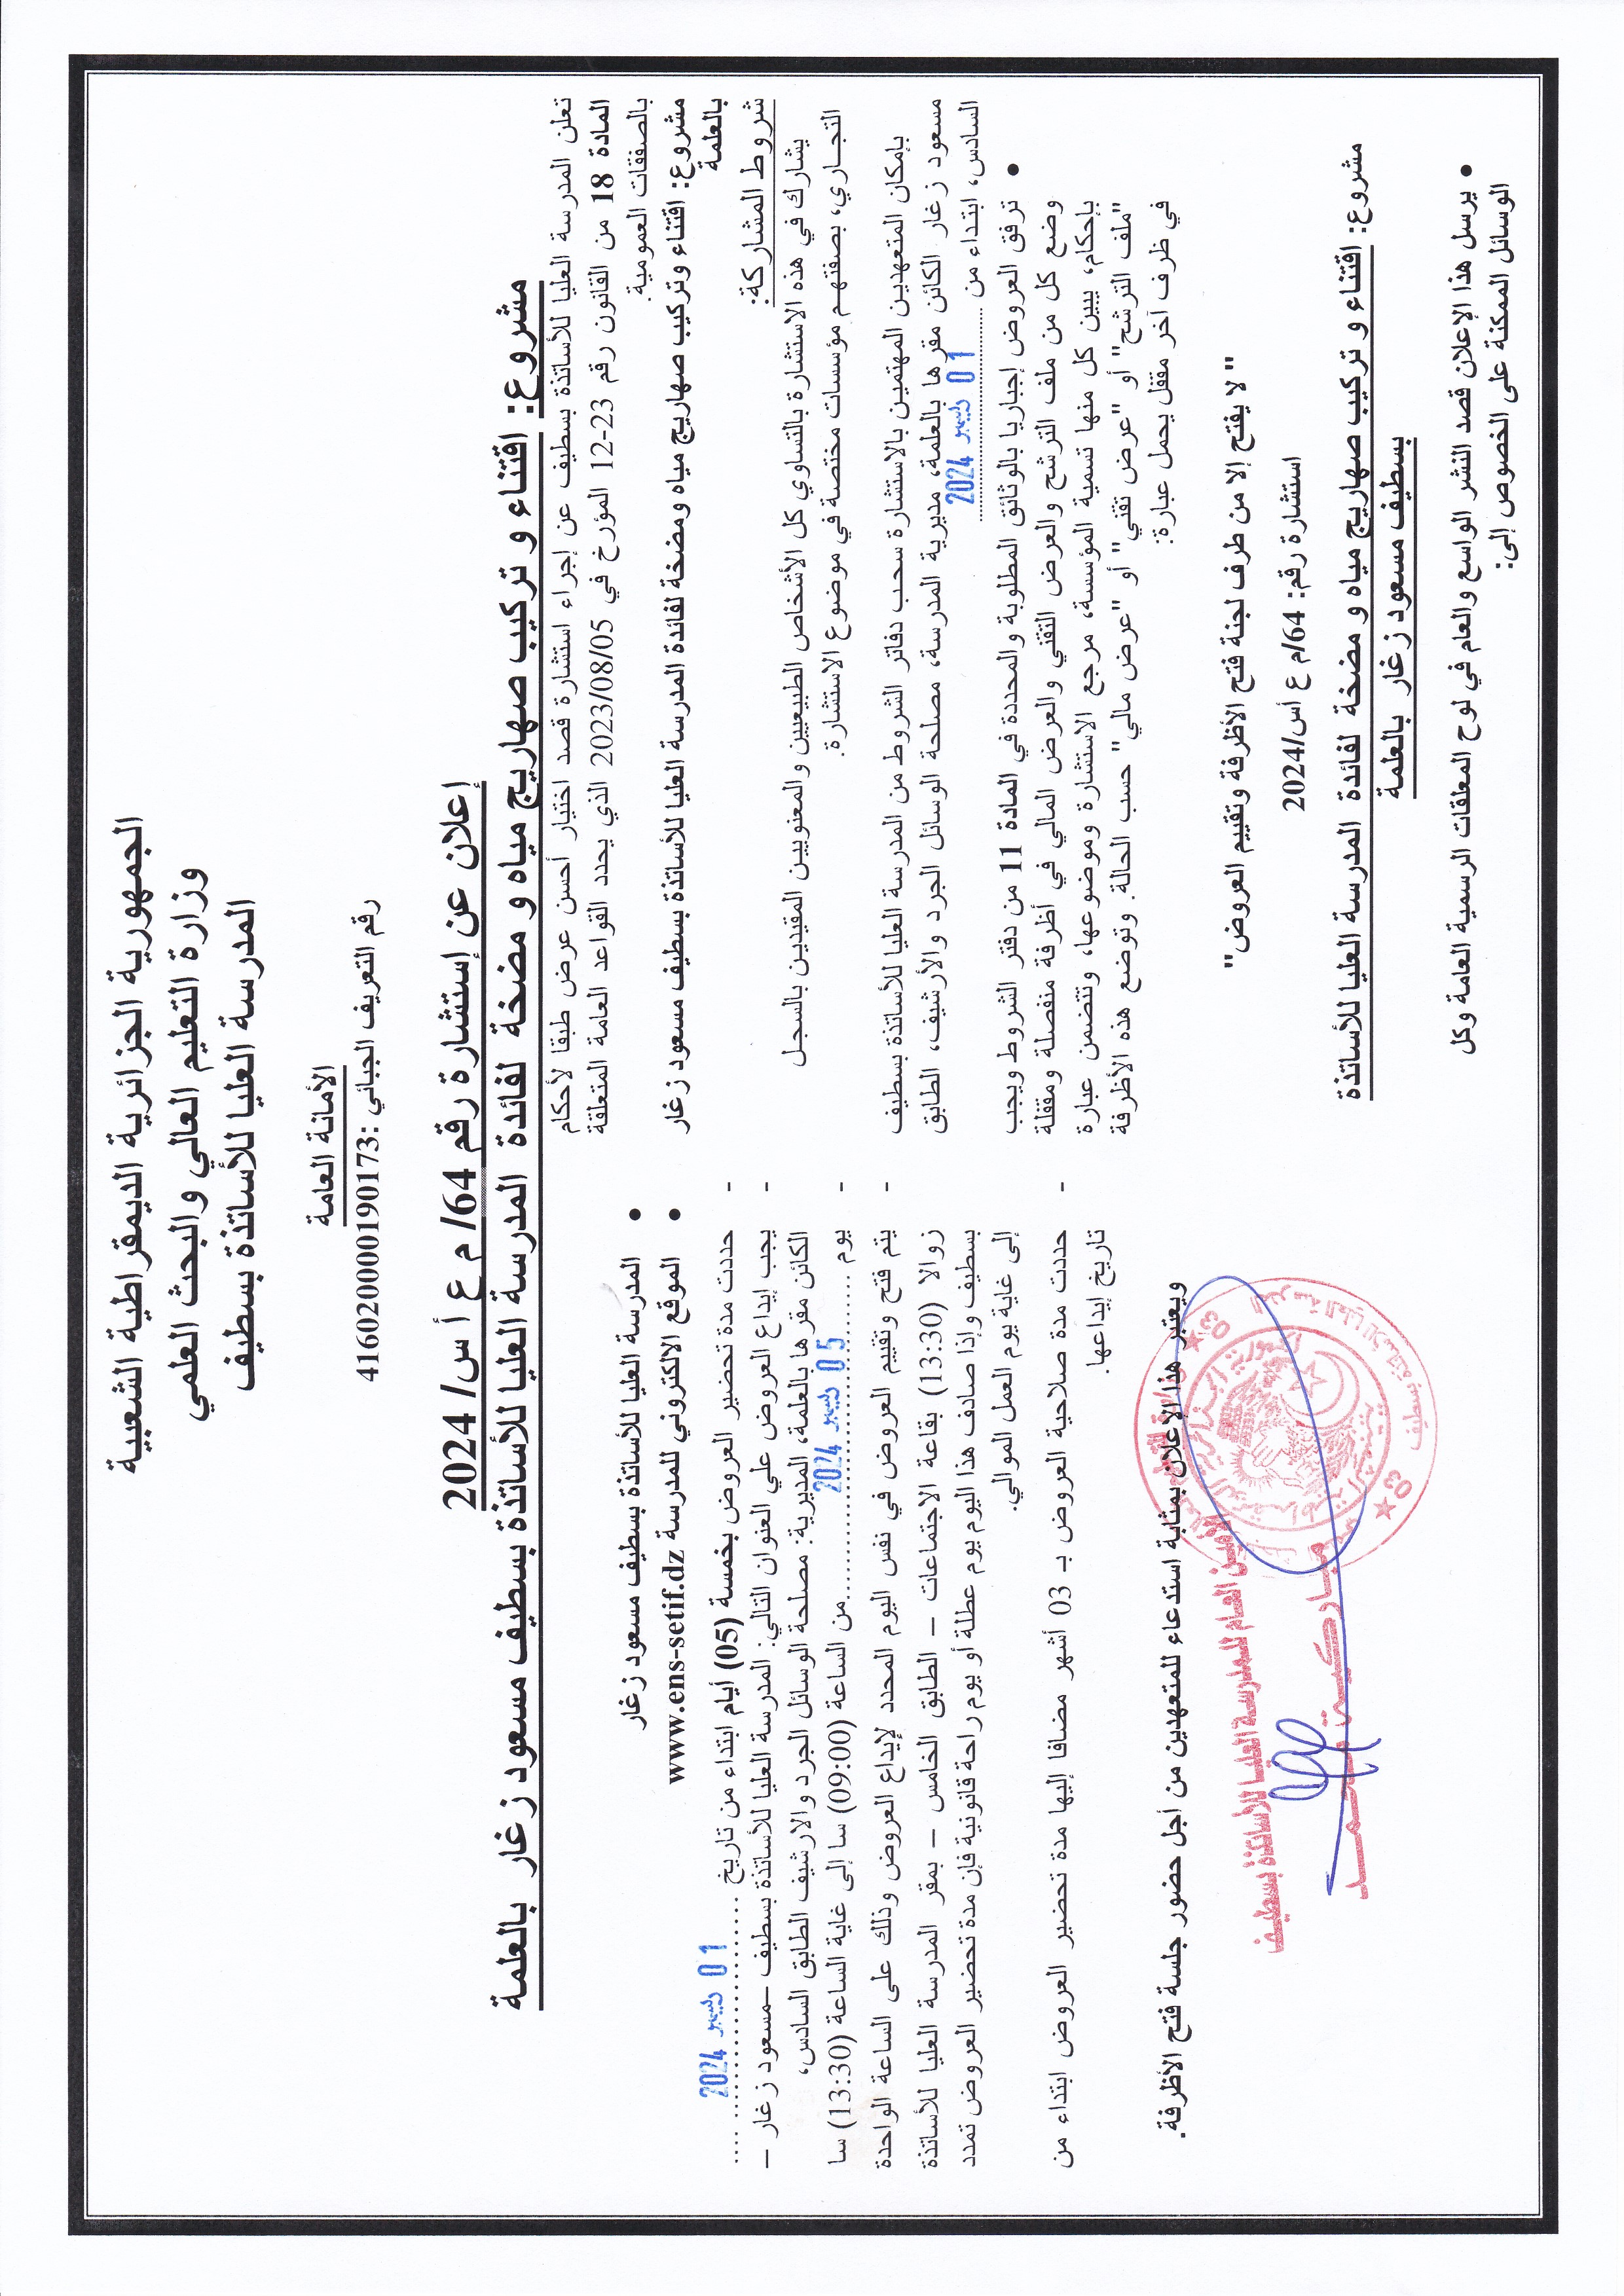 الجمهورية الجزائرية الديمقراطية الشعبية
وزارة التعليم العالي والبحث العلمي
المدرسة العليا للأساتذة بسطيف
الأمانة العامة
رقم التعريف الجبائي :416020000190173
إعلان عن إستشارة رقم 64/ م ع أ س/ 2024
مشروع: اقتناء و تركيب صهاريج مياه و مضخة لفائدة المدرسة العليا للأساتذة بسطيف مسعود زغار بالعلمة
تعلن المدرسة العليا للأساتذة بسطيف عن إجراء استشارة قصد اختيار أحسن عرض طبقا لأحكام
المادة 18 من القانون رقم 23-12 المؤرخ في 2023/08/05 الذي يحدد القواعد العامة المتعلقة
بالصفقات العمومية.
مشروع: اقتناء وتركيب صهاريج مياه ومضخة لفائدة المدرسة العليا للأساتذة بسطيف مسعود زغار
بالعلمة
شروط المشاركة:
يشارك في هذه الاستشارة بالتساوي كل الأشخاص الطبيعيين والمعنويين المقيدين بالسجل
التجاري، بصفتهم مؤسسات مختصة في موضوع الاستشارة.
بإمكان المتعهدين المهتمين بالاستشارة سحب دفاتر الشروط من المدرسة العليا للأساتذة بسطيف
مسعود زغار الكائن مقرها بالعلمة، مديرية المدرسة، مصلحة الوسائل الجرد والأرشيف، الطابق
السادس، ابتداء من 01 ديسمبر 2024
• ترفق العروض إجباريا بالوثائق المطلوبة والمحددة في المادة 11 من دفتر الشروط ويجب
وضع كل من ملف الترشح والعرض التقني والعرض المالي في أظرفة منفصلة ومقفلة
بإحكام، يبين كل منها تسمية المؤسسة، مرجع الاستشارة وموضوعها، وتتضمن عبارة
"ملف الترشح" أو "عرض تقني" أو "عرض مالي" حسب الحالة. وتوضع هذه الأظرفة
في ظرف آخر مقفل يحمل عبارة:
" لا يفتح إلا من طرف لجنة فتح الأظرفة وتقييم العروض"
استشارة رقم: 64/م ع أس/2024
مشروع: اقتناء و تركيب صهاريج مياه و مضخة لفائدة المدرسة العليا للأساتذة
بسطيف مسعود زغار بالعلمة
• يرسل هذا الإعلان قصد النشر الواسع والعام في لوح المعلقات الرسمية العامة وكل
الوسائل الممكنة على الخصوص إلى:
• المدرسة العليا للأساتذة بسطيف مسعود زغار
• الموقع الالكتروني للمدرسة www.ens-setif.dz
- حددت مدة تحضير العروض بخمسة (05) أيام ابتداء من تاريخ 01 ديسمبر 2024
- يجب إيداع العروض علي العنوان التالي: المدرسة العليا للأساتذة بسطيف –مسعود زغار –
الكائن مقرها بالعلمة، المديرية: مصلحة الوسائل الجرد والارشيف الطابق السادس،
- يوم 05 ديسمبر 2024 من الساعة (09:00) سا إلى غاية الساعة (13:30) سا
- يتم فتح وتقييم العروض في نفس اليوم المحدد لإيداع العروض وذلك على الساعة الواحدة
زوالا (13:30) بقاعة الاجتماعات – الطابق الخامس – بمقر المدرسة العليا للأساتذة
بسطيف وإذا صادف هذا اليوم يوم عطلة أو يوم راحة قانونية فإن مدة تحضير العروض تمدد
إلى غاية يوم العمل الموالي.
- حددت مدة صلاحية العروض بـ 03 أشهر مضافا إليها مدة تحضير العروض ابتداء من
تاريخ إيداعها.
ويعتبر هذا الإعلان بمثابة استدعاء للمتعهدين من أجل حضور جلسة فتح الأظرفة.
الأمين العام للمدرسة العليا للأساتذة بسطيف